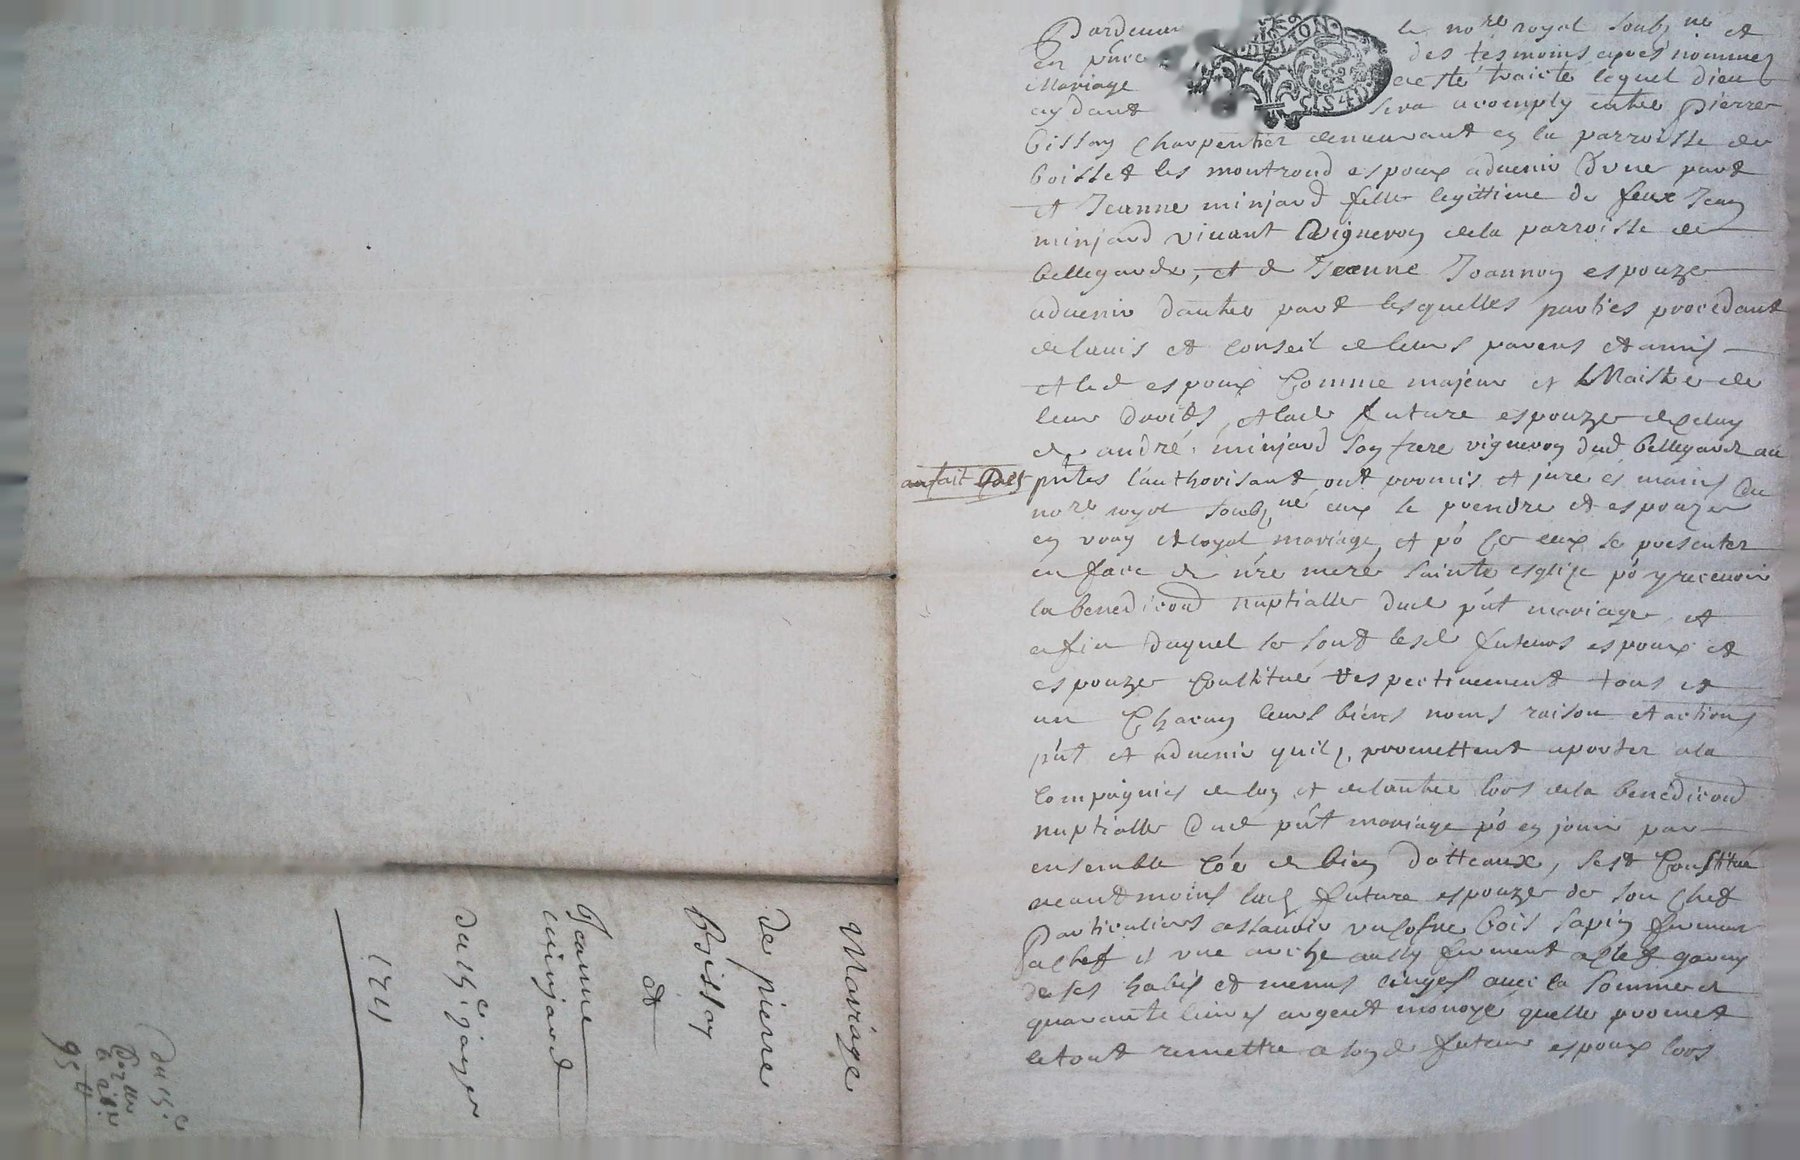 Pardeuant le no.re royal soubz.né et
en p̃nce des tesmoins apres nommez
Mariage a esté traicté lequel dieu
aydant sera acomply entre pierre
bissay charpentier demeurant en la parroisse de
boisset les montrond espoux aduenir d'une part
et Jeanne minjard fille legittime de feux Jean
minjard viuant vigneron de la parroisse de
bellegarde, et de Jeanne Joannon espouze
aduenir d'autre part lesquelles parties procedant
de l'auis et conseil de leurs parens et amis
et led espoux Comme majeur et Maistre de
leur droits, et lad future espouze de celuy
de andré minjard son frere vigneron dud bellegarde au
p̃ntes l'authorisant ont promis et juré es mains du
no.re royal soubz.né eux se prendre et espouzer
en vray et loyal mariage, et po ce eux se presenter
en face de n̄re mere sainte esglize po y receuoir
la benedic̃on nuptialle dud p̃nt mariage, et
a fin duquel se sont lesd futeurs espoux et
espouze constitué respectiuement tous et
un Chacun leurs biens noms raison et actions
p̃nt et aduenir quilz promettent aporter a la
Compagnies de lun et de lautre lors de la benedic̃on
nuptialle dud p̃nt mariage po en jouir par
ensemble coe de bien dotteaux, sest Constitué
neantmoins lad future espouze de son chef
Particuliers assauoir un cofre bois sapin fermant
a clef et une arche aussy fermant a clef garny
de ses habis et menus linges auec la somme de
quarante liures argent monoyé quelle promet
le tout remettre a sond futeur espoux lors
Mariage
de pierre
Bissay
et
Jeanne
minjard
du 15.e janer
1741
du 15.e
95 tt